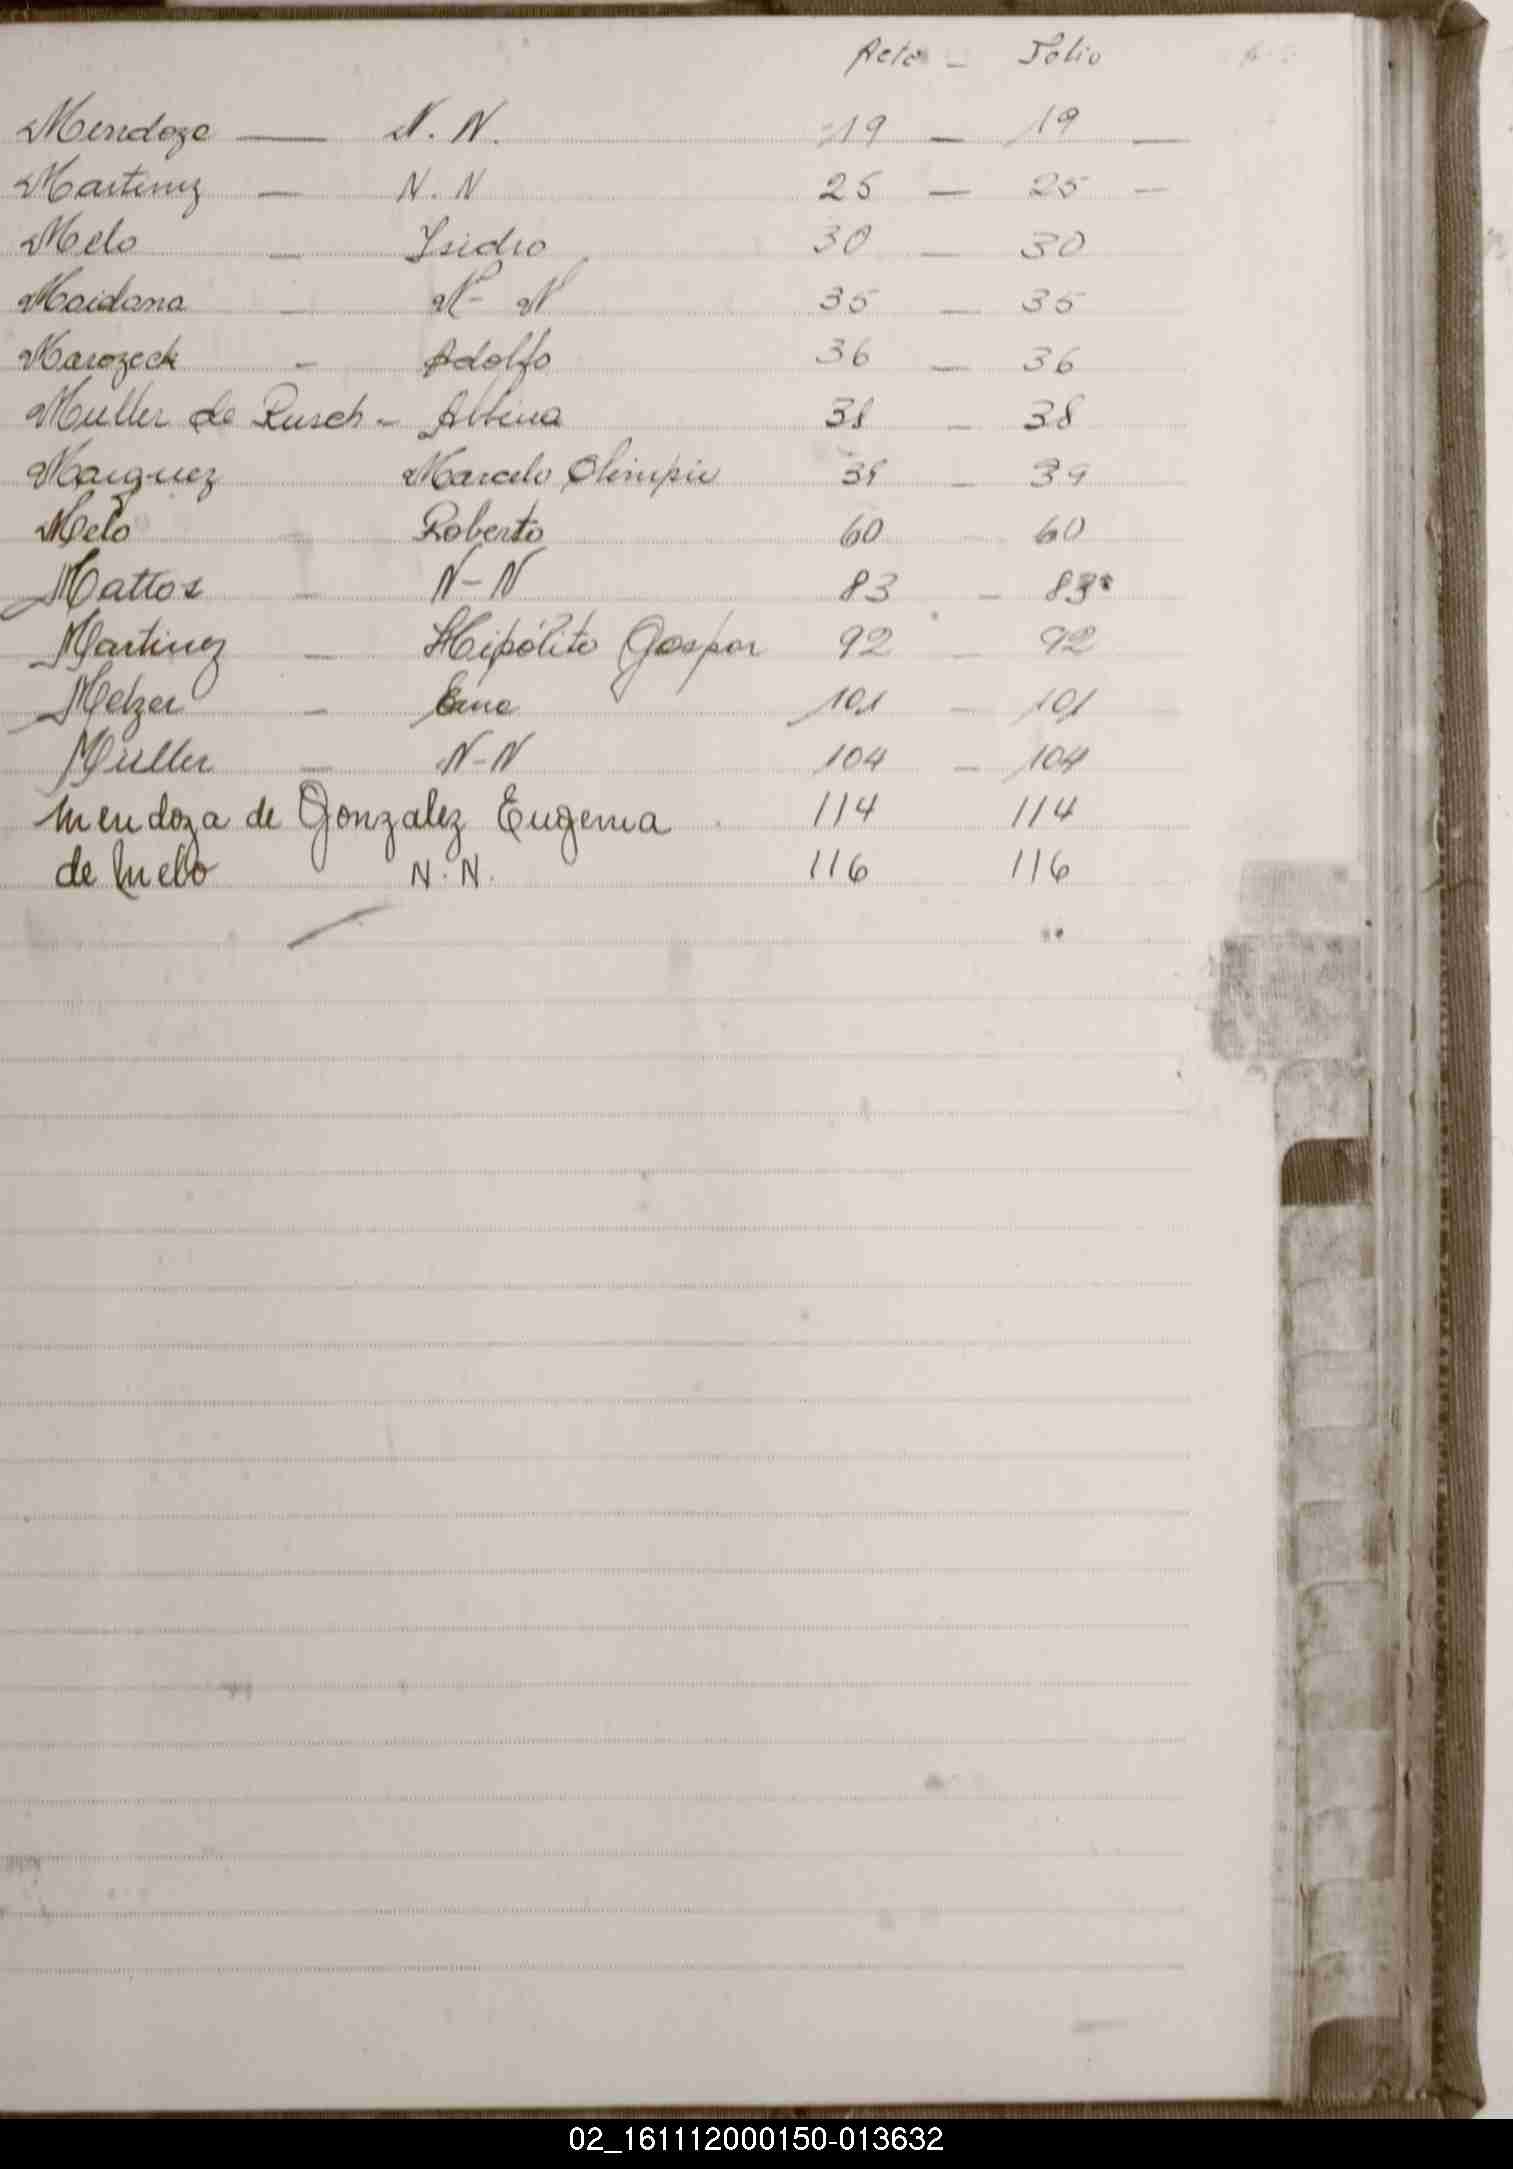 Acta - Folio
Mendoza — N. N. 19 — 19 —
Martinez — N. N 25 — 25 —
Melo — Isidro 30 — 30
Maidana - N - N 35 — 35
Marozeck - Adolfo 36 — 36
Muller de Rusch - Albina 38 - 38
Marquez Marcelo Olimpio 39 - 39
Melo - Roberto 60 - 60
Mattos - N - N 83 - 83
Martinez - Hipólito Gaspar 92 - 92
Melzer - 101 - 101
Müller - N-N 104 - 104
Mendoza de Gonzalez Eugenia 114 114
de Melo N. N. 116 116
02_161112000150-013632